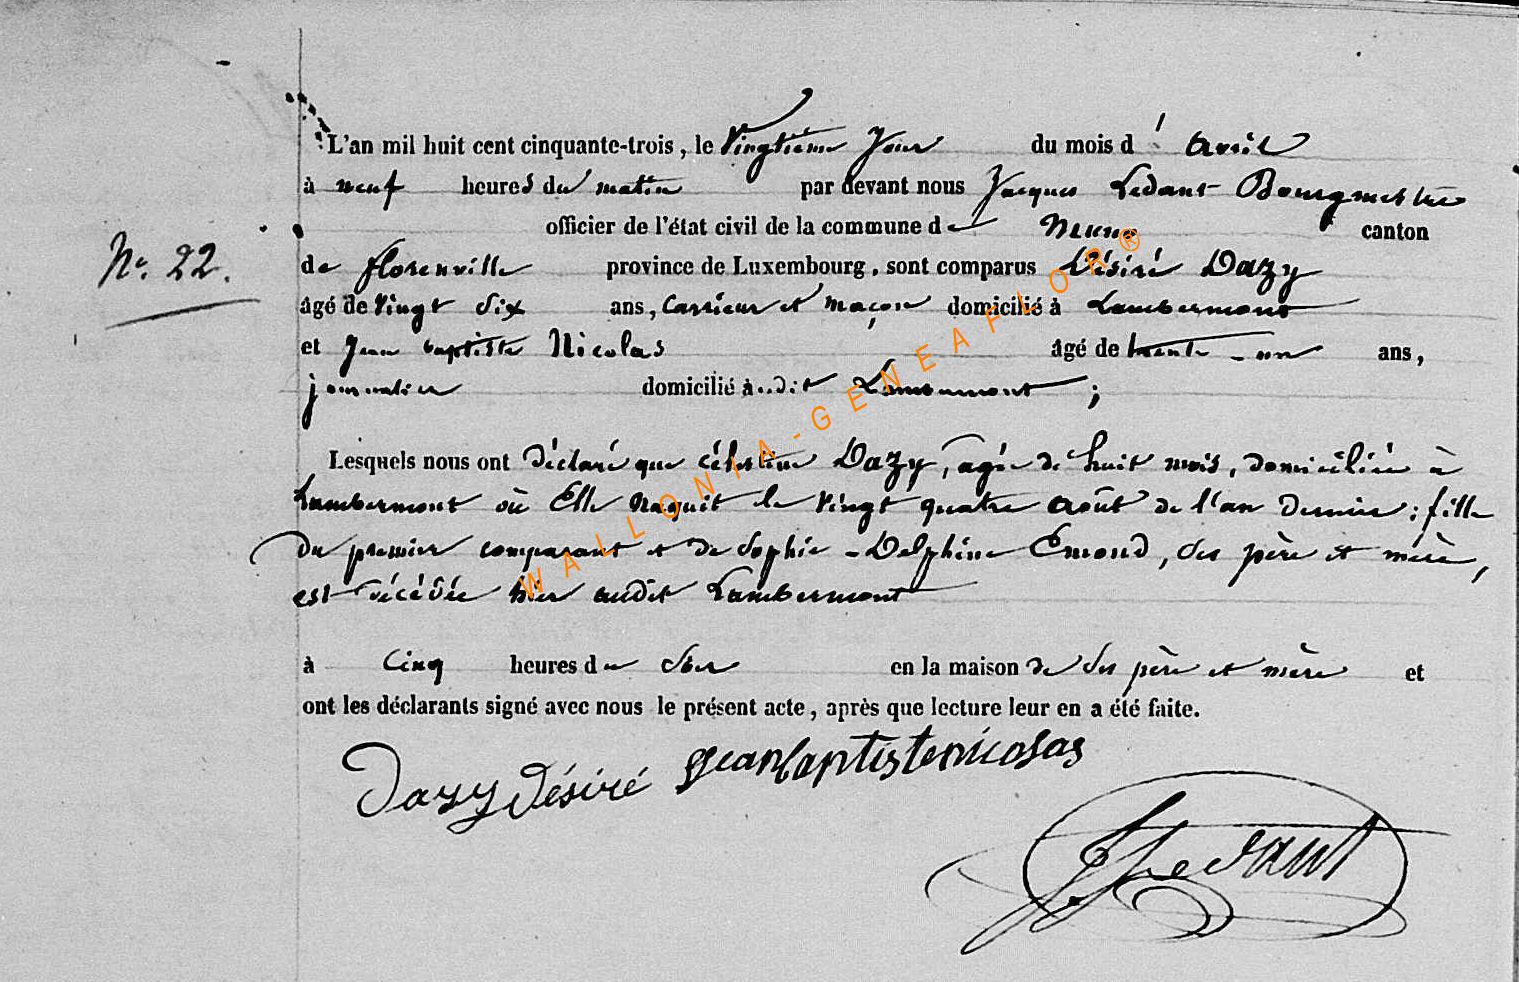 L'an mil huit cent cinquante-trois, le Vingtième Jour du mois d' avril
à neuf heures du matin par devant nous Jacques Ledant Bourgmestre
officier de l'état civil de la commune de Muno canton
Nº. 22.
de florenville province de Luxembourg, sont comparus Désiré Dazy
âgé de Vingt Six ans, Carrieur et maçon domicilié à Lambermont
et Jean baptiste Nicolas âgé de trente - un ans,
journalier domicilié à dit Lambermont ;
Lesquels nous ont déclaré que célestine Dazy, agée de huit mois, domiciliée à
Lambermont où Elle naquit le Vingt quatre août de l'an dernier ; fille
du premier comparant et de Sophie - Delphine Emond, Ses père et mère,
est décédée hier audit Lambermont
à Cinq heures du Soir en la maison de Ses père et mère et
ont les déclarants signé avec nous le présent acte, après que lecture leur en a été faite.
Dazy Désiré Jeanbaptistenicolas
JLedant
WALLONIA-GENEAFLOR®